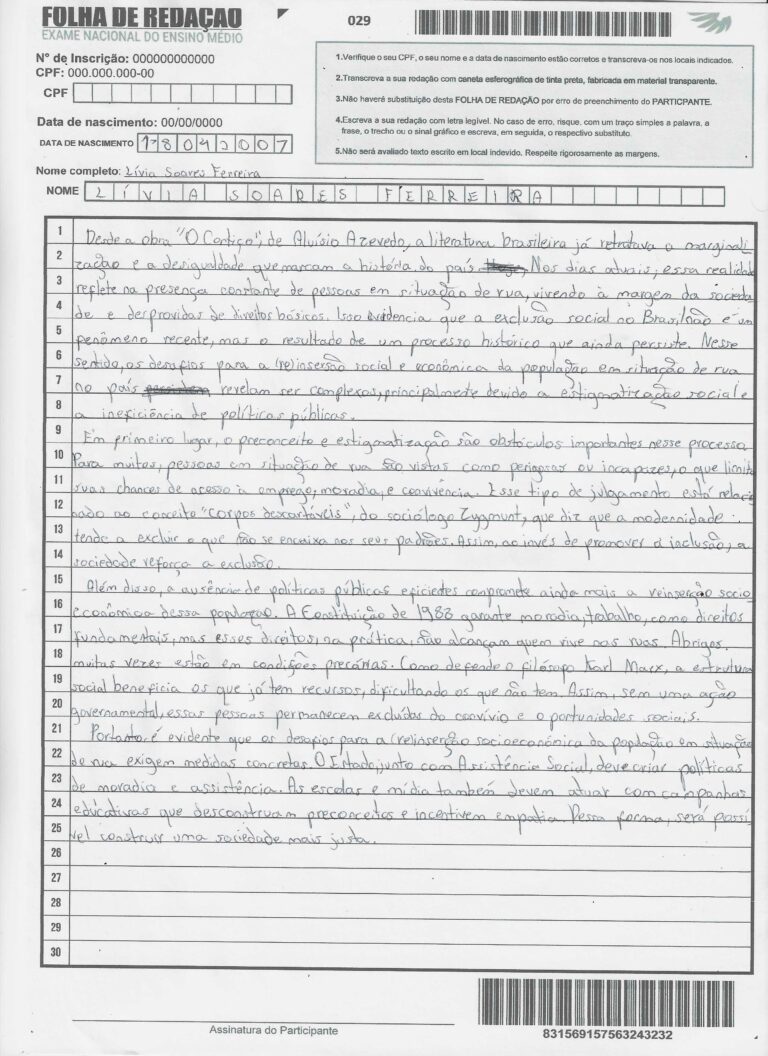 FOLHA DE REDAÇÃO
EXAME NACIONAL DO ENSINO MÉDIO
029
N° de Inscrição: 000000000000
CPF: 000.000.000-00
CPF
Data de nascimento: 00/00/0000
DATA DE NASCIMENTO 18042007
1.Verifique o seu CPF, o seu nome e a data de nascimento estão corretos e transcreva-os nos locais indicados.
2.Transcreva a sua redação com caneta esferográfica de tinta preta, fabricada em material transparente.
3.Não haverá substituição desta FOLHA DE REDAÇÃO por erro de preenchimento do PARTICIPANTE.
4.Escreva a sua redação com letra legível. No caso de erro, risque, com um traço simples a palavra, a
frase, o trecho ou o sinal gráfico e escreva, em seguida, o respectivo substituto.
5.Não será avaliado texto escrito em local indevido. Respeite rigorosamente as margens.
Nome completo: Lívia Soares Ferreira
NOME LÍVIA SOARES FERREIRA
1 Desde a obra "O Cortiço", de Aluísio Azevedo, a literatura brasileira já retratava a marginali
2 zação e a desigualdade que marcam a história do país. Nos dias atuais, essa realidade
3 reflete na presença constante de pessoas em situação de rua, vivendo à margem da socieda
4 de e desprovidas de direitos básicos. Isso evidencia que a exclusão social no Brasil não é um
5 fenômeno recente, mas o resultado de um processo histórico que ainda persiste. Nesse
6 sentido, os desafios para a (re)inserção social e econômica da população em situação de rua
7 no país revelam ser complexos, principalmente devido a estigmatização social e
8 a ineficiência de políticas públicas.
9 Em primeiro lugar, o preconceito e estigmatização são obstáculos importantes nesse processo.
10 Para muitos, pessoas em situação de rua são vistas como perigosas ou incapazes, o que limita
11 suas chances de acesso à emprego, moradia, e convivência. Esse tipo de julgamento está relacio
12 nado ao conceito "corpos descartáveis", do sociólogo Zygmunt, que diz que a modernidade
13 tende a excluir o que não se encaixa nos seus padrões. Assim, ao invés de promover a inclusão, a
14 sociedade reforça a exclusão.
15 Além disso, a ausência de políticas públicas eficientes compromete ainda mais a reinserção socio
16 econômica dessa população. A Constituição de 1988 garante moradia, trabalho, como direitos
17 fundamentais, mas esses direitos, na prática, não alcançam quem vive nas ruas. Abrigos,
18 muitas vezes estão em condições precárias. Como defende o filósofo Karl Marx, a estrutura
19 social beneficia os que já tem recursos, dificultando os que não tem. Assim, sem uma ação
20 governamental, essas pessoas permanecem excluídas do convívio e oportunidades sociais.
21 Portanto, é evidente que os desafios para a (re)inserção socioeconômica da população em situação
22 de rua exigem medidas concretas. O Estado, junto com Assistência Social, deve criar políticas
23 de moradia e assistência. As escolas e mídia também devem atuar com campanhas
24 educativas que desconstruam preconceitos e incentivem empatia. Dessa forma, será possí
25 vel construir uma sociedade mais justa.
26
27
28
29
30
Assinatura do Participante
831569157563243232